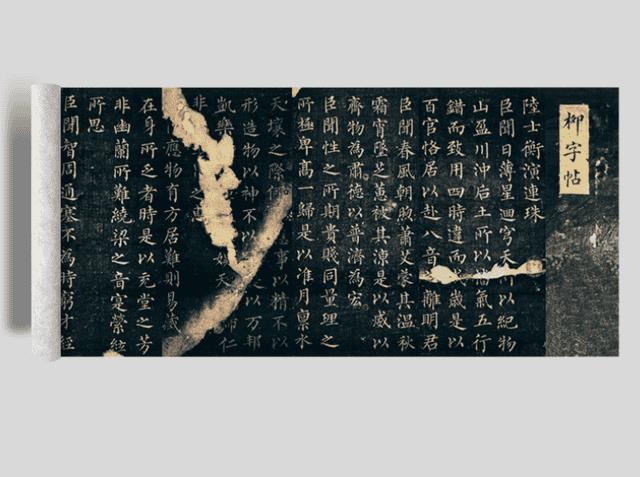 柳字帖
陸士衡演連珠
臣聞日薄星迴穹天所以紀物
山盈川沖后土所以播氣五行
錯而致用四時違而歲是以
百官恪居以赴八音之離明君
臣聞春風朝煦蕭艾蒙其温秋
霜宵墜芝蕙被其涼是以威以
齊物為肅德以普濟為宏
臣聞性之所期貴賤同量理之
所極卑高一歸是以准月稟水
天壤之際何事以精不以
形造物以神不以以万邦
凱樂天仁
非之惠
應物有方居難則易藏
在身所乏者時是以充堂之芳
非幽蘭所難繞梁之音寔縈絃
所思
臣聞智周通塞不為時窮才經